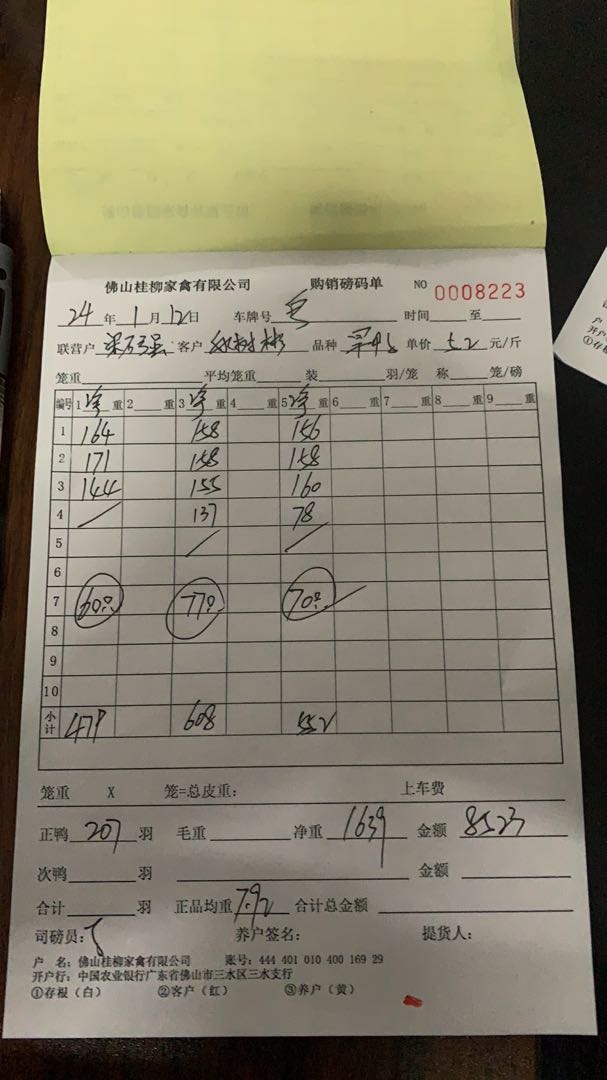 佛山桂柳家禽有限公司 购销磅码单 NO 0008223
24 年 1 月 12 日 车牌号 时间 至
联营户 客户 品种 单价 5.2 元/斤
笼重 平均笼重 装 羽/笼 称 笼/磅
编号 1 重 2 重 3 重 4 重 5 重 6 重 7 重 8 重 9 重
1 164 158 156
2 171 158 158
3 144 155 160
4 137 78
5
6
7 60只 77只 70只
8
9
10
小计 479 608 552
笼重 X 笼=总皮重: 上车费
正鸭 207 羽 毛重 净重 1639 金额 8523
次鸭 羽 金额
合计 羽 正品均重 7.92 合计总金额
司磅员: 养户签名: 提货人:
户 名: 佛山桂柳家禽有限公司 账号: 444 401 010 400 169 29
开户行: 中国农业银行广东省佛山市三水区三水支行
①存根(白) ②客户(红) ③养户(黄)